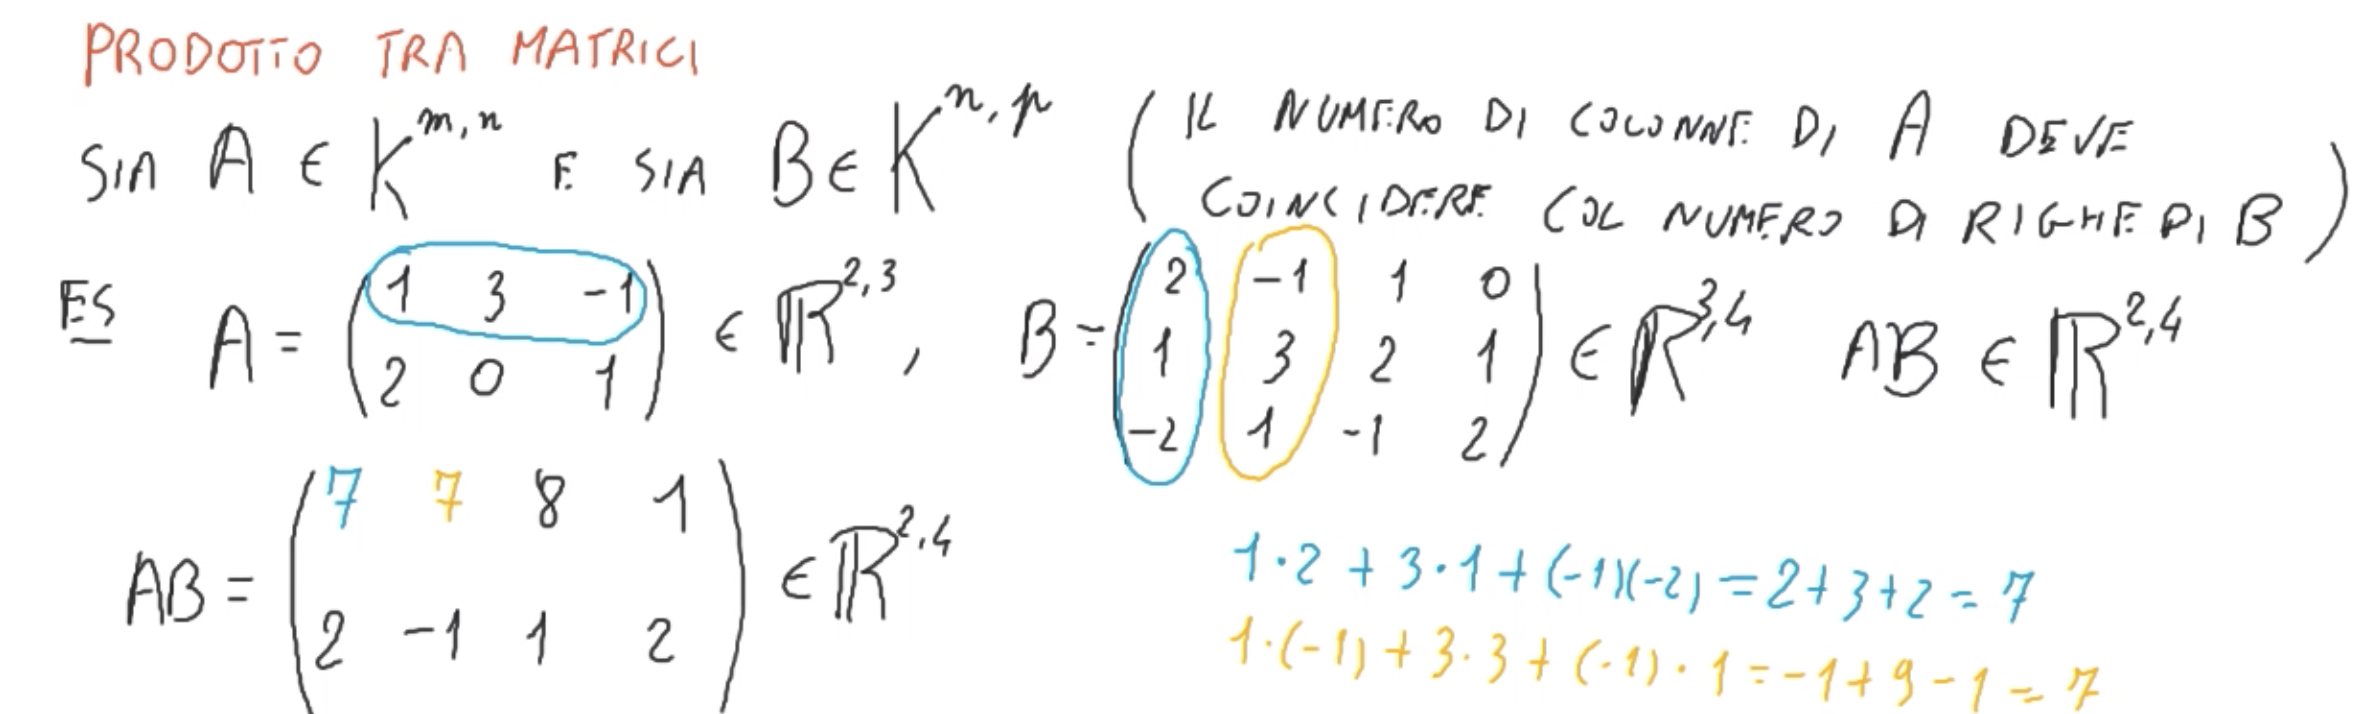 PRODOTTO TRA MATRICI
SIA A ∈ K^{m,n} E SIA B ∈ K^{n,p} ( IL NUMERO DI COLONNE DI A DEVE
COINCIDERE COL NUMERO DI RIGHE DI B )
ES A = ( 1 3 -1 ; 2 0 1 ) ∈ ℝ^{2,3} , B = ( 2 -1 1 0 ; 1 3 2 1 ; -2 1 -1 2 ) ∈ ℝ^{3,4} AB ∈ ℝ^{2,4}
AB = ( 7 7 8 1 ; 2 -1 1 2 ) ∈ ℝ^{2,4}
1·2 + 3·1 + (-1)(-2) = 2+3+2 = 7
1·(-1) + 3·3 + (-1)·1 = -1+9-1 = 7